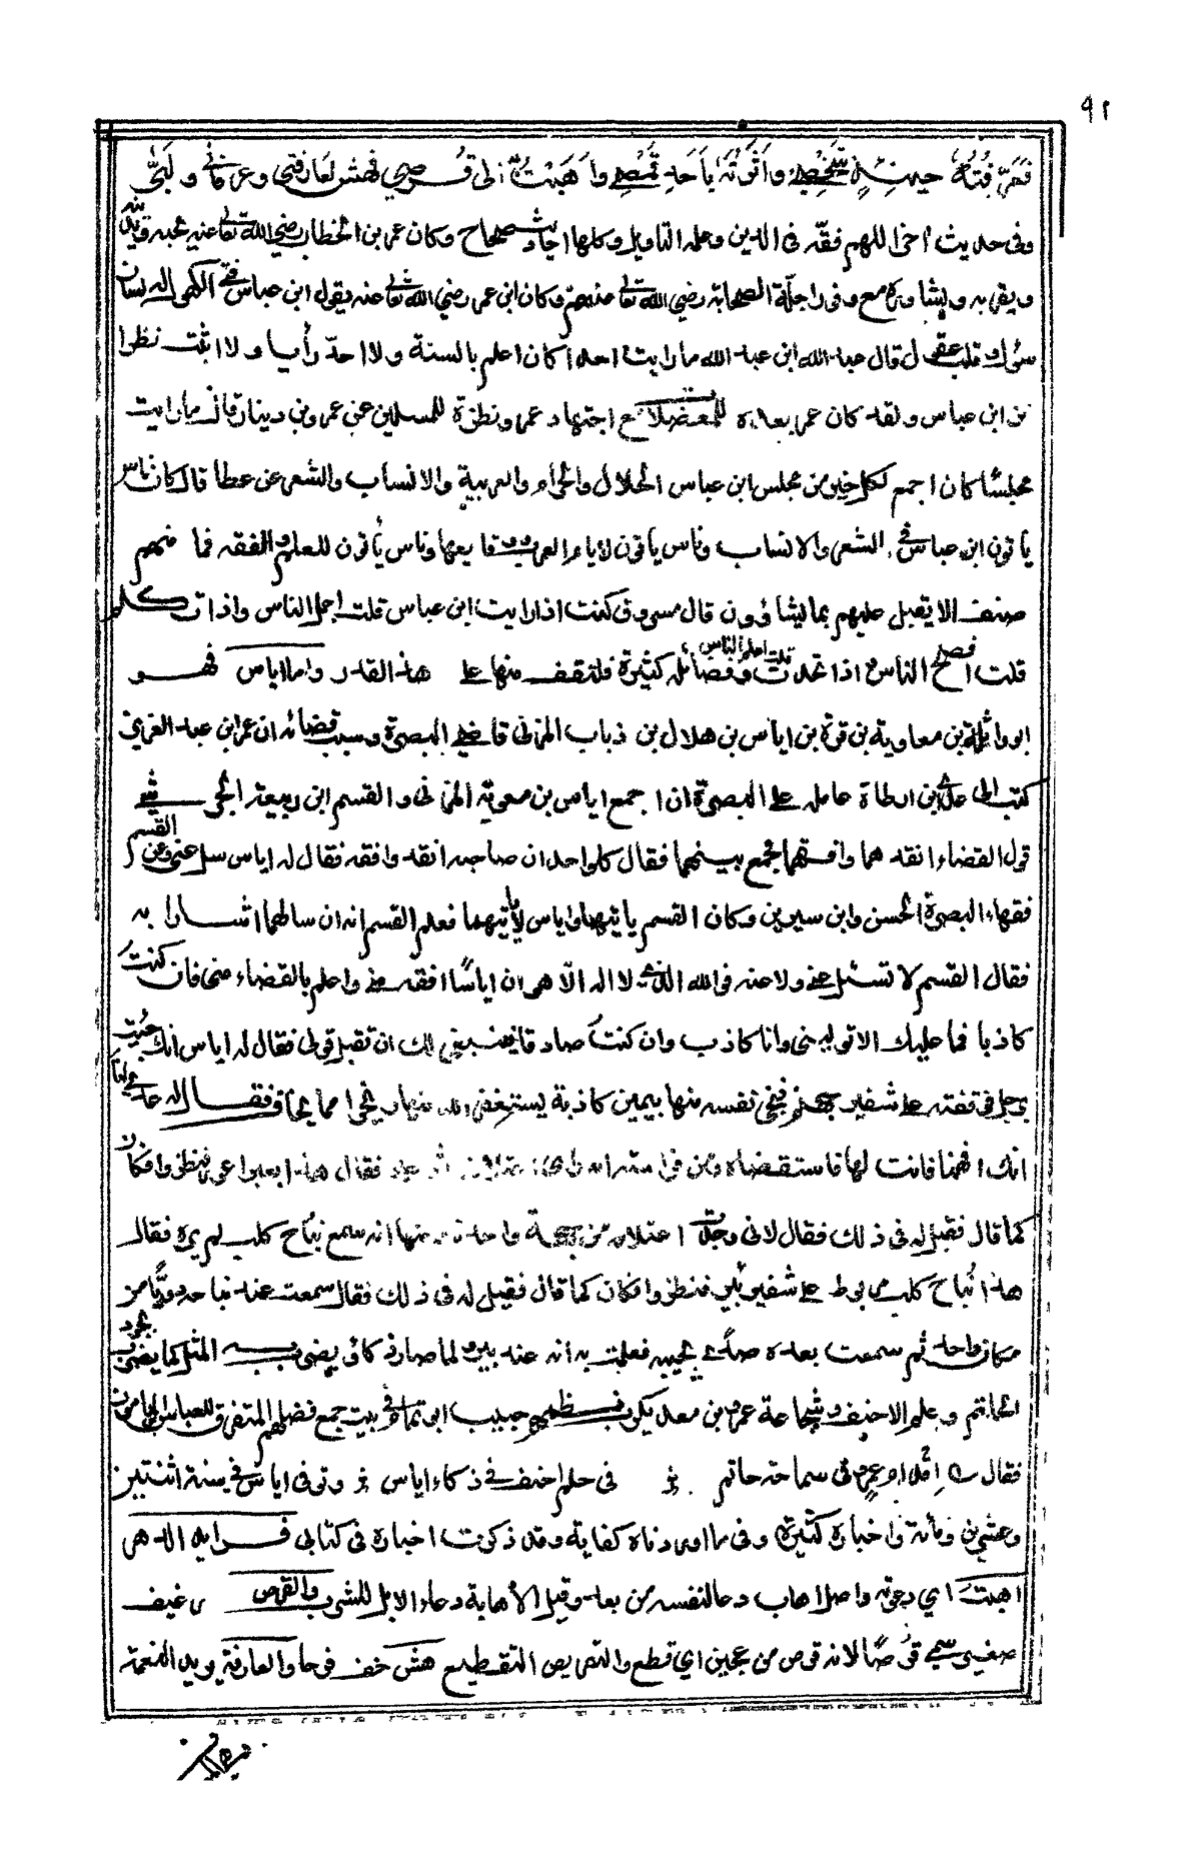 ٩٢
فعرفته حينئذ شخصي وآثرته بأحد قمصي وأهبت به إلى قرصي فهش لعارفتي وعرفاني ولبى
وفي حديث اخر اللهم فقهه في الدين وعلمه التاويل وكلها احاديث صحاح وكان عمر بن الخطاب رضي الله تعالى عنه يحبه ويدنيه
ويقربه ويشاوره مع وفور اجلة الصحابة رضي الله تعالى عنهم وكان ابن عمر رضي الله تعالى عنه يقول ابن عباس فتى الكهول له لسان
سؤل وقلب عقول قال عبد الله ابن عبد الله ما رايت احدا كان اعلم بالسنة ولا احد رأيا ولا اثبت نظرا
من ابن عباس ولقد كان عمر يعده للمعضلات مع اجتهاد عمر ونظره للمسلمين عن عمرو بن دينار قال ما رايت
مجلسا كان اجمع لكل خير من مجلس ابن عباس الحلال والحرام والعربية والانساب والشعر عن عطا قال كان ناس
يأتون ابن عباس في الشعر والانساب وناس يأتون لايام العرب ووقايعها وناس يأتون للعلم والفقه فما منهم
صنف الا يقبل عليهم بما يشاؤون قال مسروق كنت اذا رايت ابن عباس قلت اجمل الناس واذا تكلم
قلت افصح الناس واذا تحدث قلت اعلم الناس وفضائله كثيرة فلنقف منها على هذا القدر واما اياس فهو
ابو واثلة بن معاوية بن قرة بن اياس بن هلال بن ذباب المزني قاضي البصرة وسبب قضائه ان عمر ابن عبد العزيز
كتب الى عدي بن ارطاة عامله على البصرة ان اجمع اياس بن معوية المزني والقسم ابن ربيعة الجرشي
فول القضاء انفدهما وافقههما فجمع بينهما فقال كل واحد ان صاحبه انفد وافقه فقال له اياس سل عني وعن القسم
فقهاء البصرة الحسن وابن سيرين وكان القسم ياتيهما واياس لا يأتيهما فعلم القسم انه ان سالهما اشارا به
فقال القسم لا تسئل عني ولا عنه فو الله الذي لا اله الا هو ان اياسا افقه مني واعلم بالقضاء مني فان كنت
كاذبا فما عليك الا توليه مني وانا كاذب وان كنت صادقا فينبغي لك ان تقبل قولي فقال له اياس انك جئت
برجل فوقفته على شفير جهنم فنجى نفسه منها بيمين كاذبة يستغفر الله منها وينجو مما يخاف فقال له عدي اما
انك افهمنا فانت لها فاستقضاه ومن فقال هذا فنظروا فكان
كما قال فقيل له في ذلك فقال لاني وجدت من جهة واحدة منها انه سمع نباح كلب لم يره فقال
هذا نباح كلب مربوط على شفير بئر فنظروا فكان كما قال فقيل له في ذلك فقال سمعت عند نباحه دويا من
مكان واحد ثم سمعت بعده صدى يجيبه فعلمت به انه عند بير ولما صار ذكاؤه يضرب به المثل كما يضرب بجود
الحاتم وبحلم الاحنف وشجاعة عمرو بن معد يكرب نظمهم حبيب ابو تمام في بيت جمع فضلهم المتفرق للعباس بن المامون
فقال اقدام عمرو في سماحة حاتم في حلم احنف في ذكاء اياس وتوفي اياس في سنة اثنتين
وعشرين ومأته واخباره كثيرة وفي ما اوردناه كفاية وقد ذكرت اخباره في كتابي فرايد الدهر
اهبت اي دعوته واصل اهاب دعا لنفسه من بعد وقيل الأهابة دعاء الابل للشرب والقرص رغيف
صغير سمي قرصا لانه قرص من عجين اي قطع والتقريص التقطيع هش خف فرحا والعارفة يريد النعمة